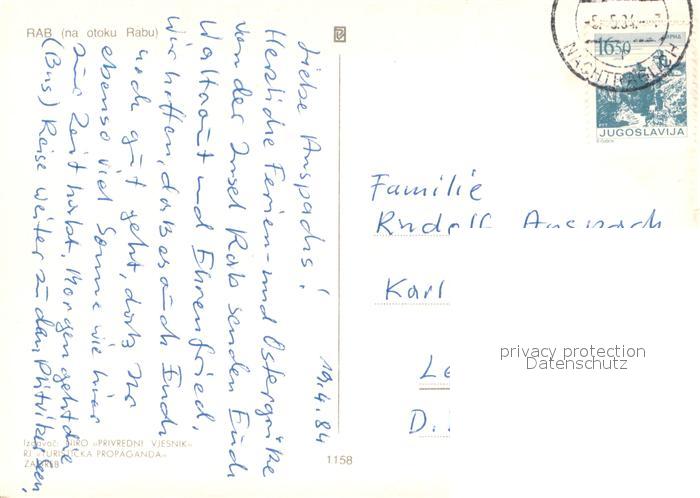 RAB (na otoku Rabu)
19.4.84
Liebe Anspachs!
Herzliche Ferien- und Ostergrüße
von der Insel Rab senden Euch
Waltraut und Ehrenfried.
Wir hoffen, daß es auch Euch
noch gut geht, daß Ihr
ebenso viel Sonne wie hier
zur Zeit habt. Morgen geht die
(Bus) Reise weiter zu den Plitvicer Seen,
Izdavač: NIRO »PRIVREDNI VJESNIK«
RJ »TURISTIČKA PROPAGANDA«
ZAGREB
1158
-5. 5.84.-7
NACHTRÄGLICH
16.50
JUGOSLAVIJA
Familie
Rudolf Anspach
Karl
Le
D.
privacy protection
Datenschutz